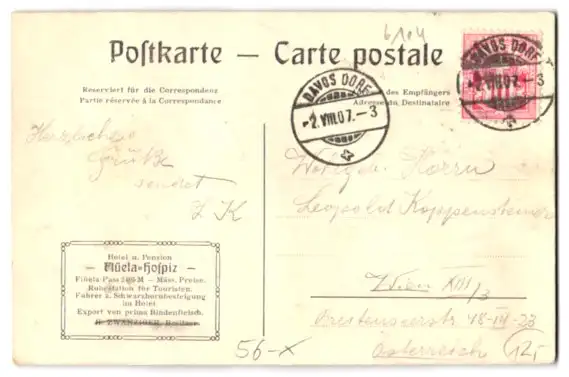 6104
Postkarte — Carte postale
Reserviert für die Correspondenz
Partie réservée à la Correspondance
des Empfängers
Adresse du Destinataire
DAVOS DORF
-2.VIII.07.-3
DAVOS DORF
-2.VIII.07.-3
Herzliche
Grüße
sendet
L K
Wohlgeb. Herrn
Leopold Koppensteiner
Wien XIII/3
48-III-23
Österreich
Hotel u. Pension
— Flüela-Hospiz —
Flüela Pass 2403 M – Mäss. Preise.
Ruhestation für Touristen.
Führer z. Schwarzhornbesteigung
im Hotel.
Export von prima Bindenfleisch.
ZWANZIGER, Besitzer
56-x
12.-